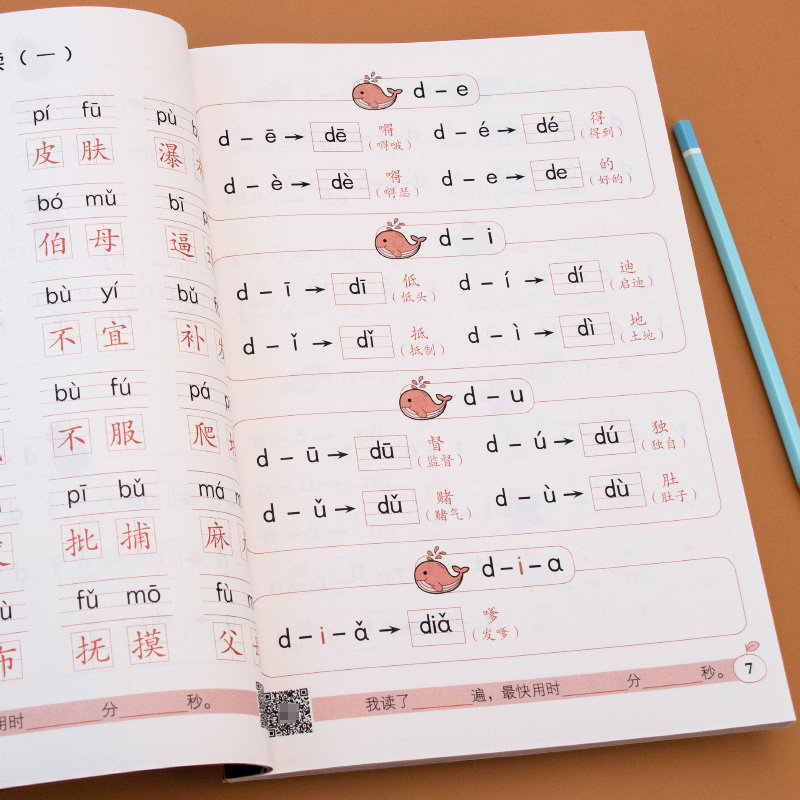 读（一）
pí fū pù
皮 肤 瀑
bó mǔ bī
伯 母 逼
bù yí bǔ
不 宜 补
bù fú pá
不 服 爬
pī bǔ má
批 捕 麻
fǔ mō fù
布 抚 摸 父
用时 分 秒。
d – e
d – ē → dē 嘚 （嘚啵） d – é → dé 得 （得到）
d – è → dè 嘚 （嘚瑟） d – e → de 的 （好的）
d – i
d – ī → dī 低 （低头） d – í → dí 迪 （启迪）
d – ǐ → dǐ 抵 （抵制） d – ì → dì 地 （土地）
d – u
d – ū → dū 督 （监督） d – ú → dú 独 （独自）
d – ǔ → dǔ 赌 （赌气） d – ù → dù 肚 （肚子）
d–i–ɑ
d – i – ǎ → diǎ 嗲 （发嗲）
我读了 遍，最快用时 分 秒。
7